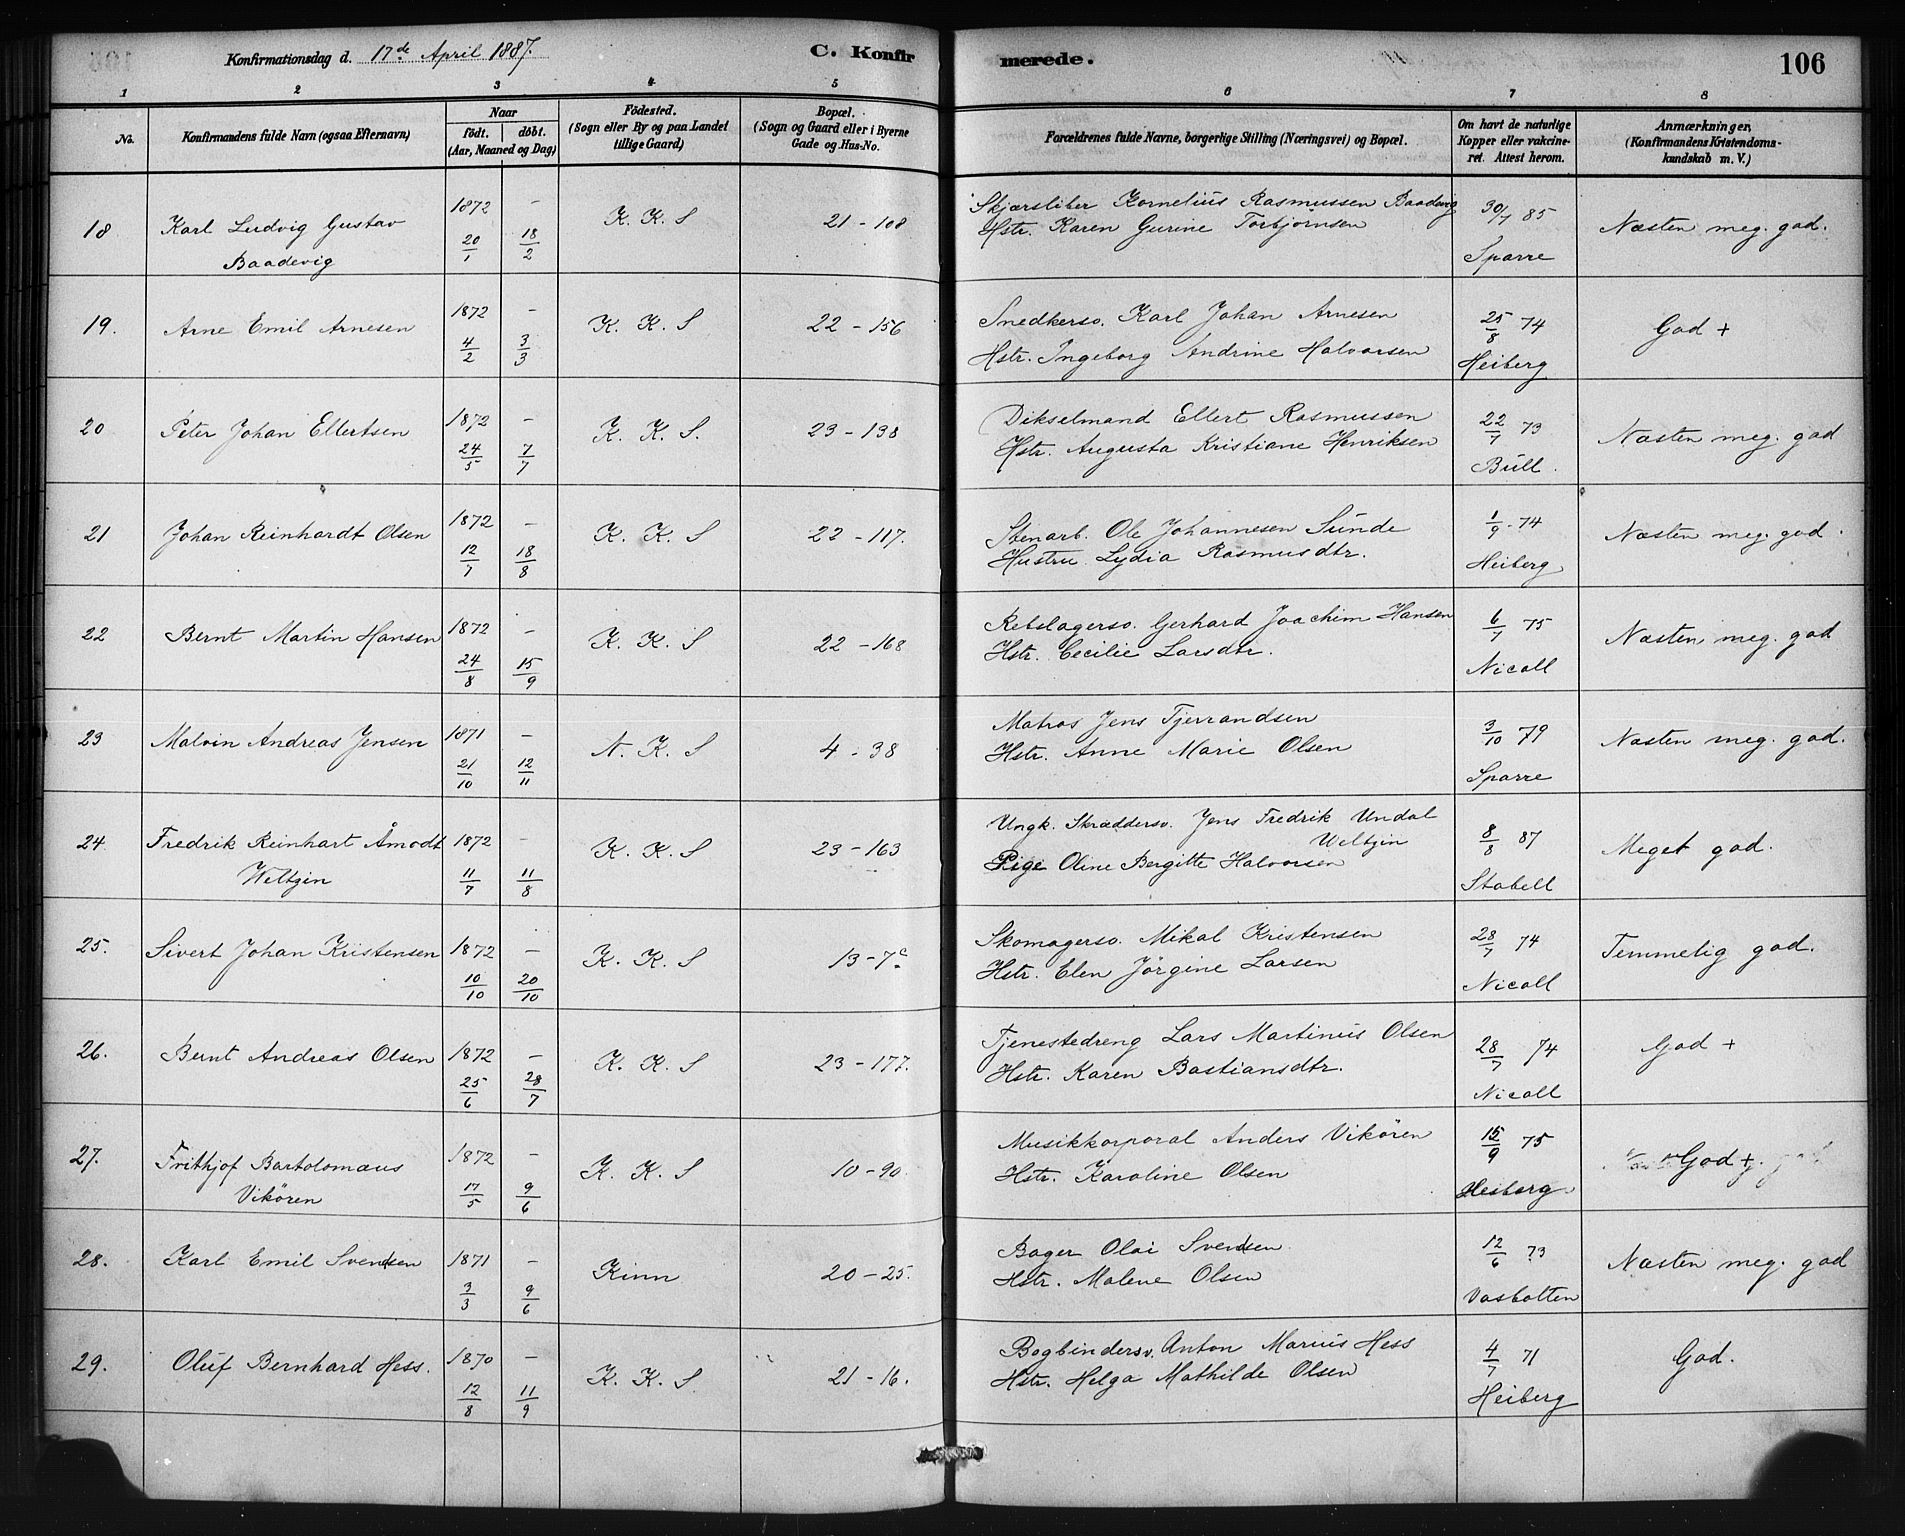 Konfirmationsdag d. 17de April 1887.
C. Konfirmerede.
106
1 2 3 4 5 6 7 8
No.
Konfirmandens fulde Navn (ogsaa Efternavn)
Naar
födt. döbt.
(Aar, Maaned og Dag)
Födested.
(Sogn eller By og paa Landet
tillige Gaard)
Bopæl.
(Sogn og Gaard eller i Byerne
Gade og Hus-No.
Forældrenes fulde Navne, borgerlige Stilling (Næringsvei) og Bopæl.
Om havt de naturlige
Kopper eller vakcine-
ret. Attest herom.
Anmærkninger,
(Konfirmandens Kristendoms-
kundskab m. V.)
18 Karl Ludvig Gustav 1872 – K. K. S 21 - 108 Skjærsliber Kornelius Rasmussen Baadevig 30/7 85 Næsten meg. god.
Baadevig 20/1 18/2 Hstr. Karen Gurine Torbjørnsen Sparre
19. Arne Emil Arnesen 1872 – K. K. S 22 - 156 Snedkersv. Karl Johan Arnesen 25/8 74 God +
4/2 3/3 Hstr. Ingeborg Andrine Halvorsen Heiberg
20 Peter Johan Ellertsen 1872 – K. K. S. 23 - 138 Dikselmand Ellert Rasmussen 22/7 73 Næsten meg. god
24/5 7/7 Hstr. Augusta Kristiane Henriksen Büll.
21 Johan Reinhardt Olsen 1872 – K. K. S 22 - 117. Stenarb. Ole Johannesen Sunde 1/9 - 74 Næsten meg. god.
12/7 18/8 Hustru Lydia Rasmusdtr. Heiberg
22 Bernt Martin Hansen 1872 – K. K. S 22 - 168 Rebslagersv. Gerhard Joachim Hansen 6/7 75 Næsten meg. god
24/8 15/9 Hstr. Cecilie Larsdtr. Nicoll
23 Malvin Andreas Jensen 1871 – N. K. S 4 - 38 Matros Jens Tjerrandsen 3/10 79 Næsten meg. god.
21/10 12/11 Hstr. Anne Marie Olsen Sparre
24 Fredrik Reinhart Åmodt 1872 – K. K. S 23 - 163 Ungk. Skræddersv. Jens Fredrik Undal 8/8 87 Meget god.
Weltzin 11/7 11/8 Weltzin
Pige Oline Bergitte Halvorsen Stabell
25. Sivert Johan Kristensen 1872 – K. K. S 13 - 7c Skomagersv. Mikal Kristensen 28/7 74 Temmelig god.
10/10 20/10 Hstr. Elen Jörgine Larsen Nicoll
26. Bernt Andreas Olsen 1872 – K. K. S 23 - 177. Tjenestedreng Lars Martinus Olsen 28/7 74 God +
25/6 28/7 Hstr. Karen Bastiansdtr. Nicoll
27. Frithjof Bartolomæus 1872 – K. K. S 10 - 90. Musikkorporal Anders Vikören 15/9 75 God +
Vikören 17/5 9/6 Hstr. Karoline Olsen Heiberg
28. Karl Emil Svendsen 1871 – Kinn 20 - 25. Bager Olai Svendsen 12/6 73 Næsten meg. god
3/3 9/6 Hstr. Malene Olsen Vasbotten
29. Oluf Bernhard Hess. 1870 – K. K. S. 21 - 16. Bogbindersv. Anton Marius Hess 4/7 71 God.
12/8 11/9 Hstr. Helga Mathilde Olsen Heiberg